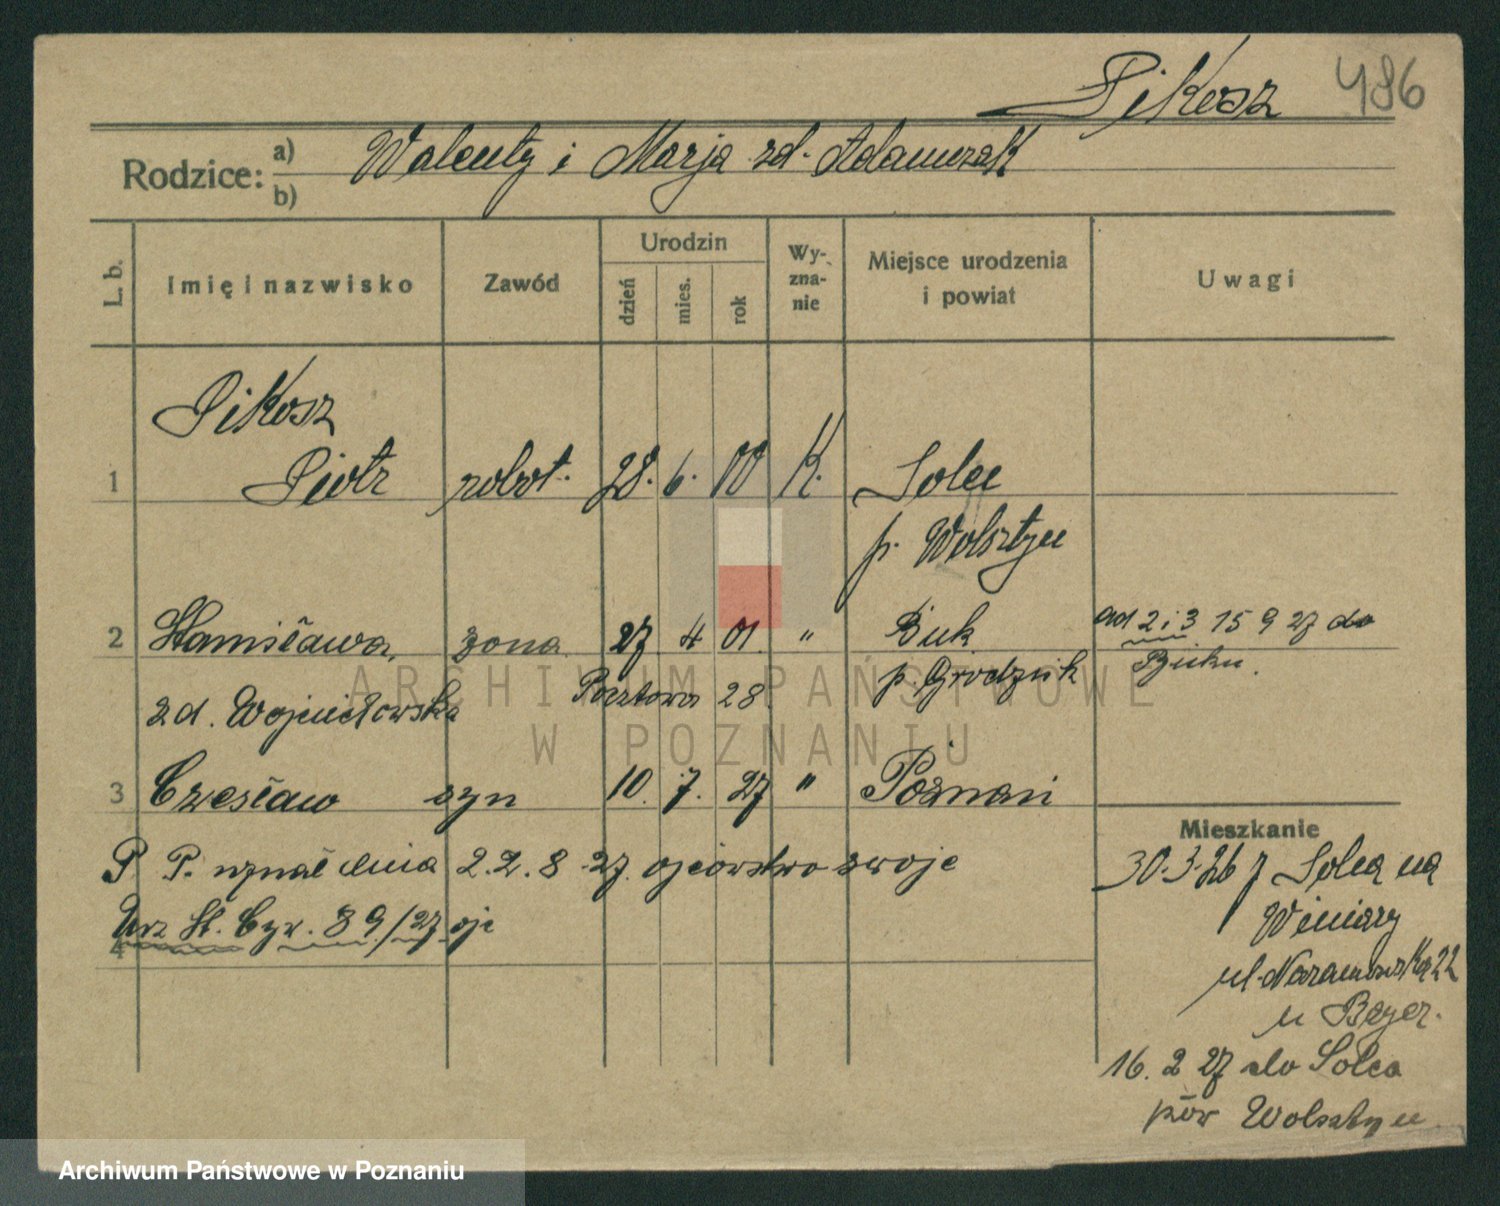 Pikosz 486
Rodzice: a) Walenty i Marja zd. Adamczak
b)
L. b. Imię i nazwisko Zawód Urodzin dzień mies. rok Wy-zna-nie Miejsce urodzenia i powiat Uwagi
Pikosz
1 Piotr robot. 28. 6. 00 K. Solec
p. Wolsztyn
2 Stanisława, żona 27. 4 01. " Buk ad 2 i 3 15 9 27 do
Buku.
zd. Wojciechowska Pocztowa 28 p. Grodzisk
3 Czesław syn 10. 7. 27 " Poznań
P P. uznał dnia 22.8.27. ojcostwo swoje
Urz St. Cyw. 89/27
4
Mieszkanie
30.3.26 z Solca na
Winiary
ul. Naramowicka 22
u Beyer.
16. 2 27 do Solca
pow Wolsztyn
ARCHIWUM PAŃSTWOWE
W POZNANIU
Archiwum Państwowe w Poznaniu